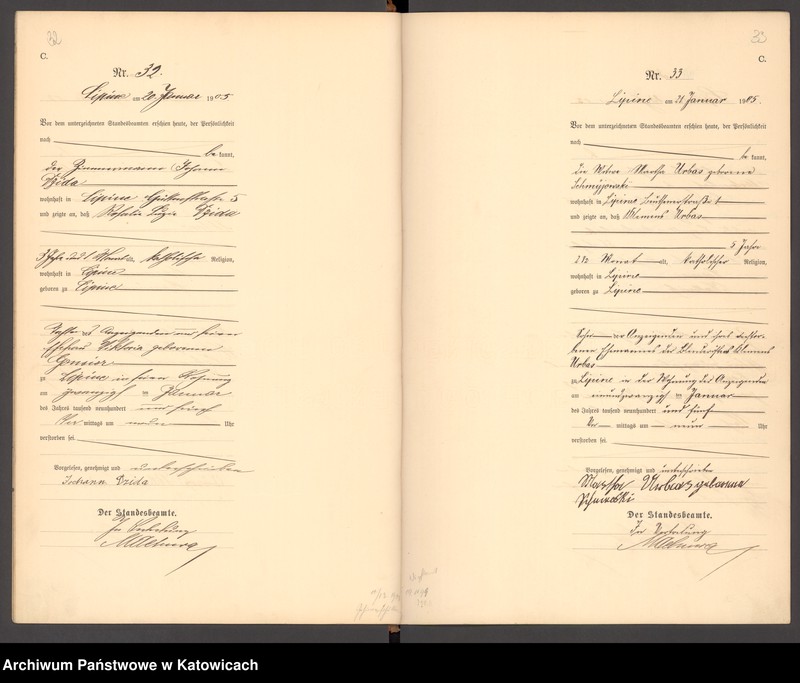 32
C.
Nr. 32.
Lipine am 20 Januar 1905
Vor dem unterzeichneten Standesbeamten erschien heute, der Persönlichkeit
nach
be kannt,
der Zimmermann Johann
Dzida
wohnhaft in Lipine 5
und zeigte an, daß Rosalie Dzida
alt, katholischer Religion,
wohnhaft in Lipine
geboren zu Lipine
Tochter des Anzeigenden und seiner
Ehefrau Viktoria geborenen
zu Lipine in seiner Wohnung
am zwanzigsten Januar
des Jahres tausend neunhundert und fünf
Vor mittags um neun Uhr
verstorben sei.
Vorgelesen, genehmigt und unterschrieben
Johann Dzida
Der Standesbeamte.
In Vertretung
33
C.
Nr. 33
Lipine am 21 Januar 1905.
Vor dem unterzeichneten Standesbeamten erschien heute, der Persönlichkeit
nach
be kannt,
die Witwe Martha Urbas geborene
wohnhaft in Lipine Beuthenerstraße
und zeigte an, daß Klemens Urbas
5 Jahre
Monat alt, katholischer Religion,
wohnhaft in Lipine
geboren zu Lipine
Sohn der Anzeigenden und ihres verstor-
benen Ehemannes des Klemens
Urbas
zu Lipine in der Wohnung der Anzeigenden
am Januar
des Jahres tausend neunhundert und fünf
Vor mittags um neun Uhr
verstorben sei.
Vorgelesen, genehmigt und unterschrieben
Martha Urbas geborene
Der Standesbeamte.
In Vertretung
Archiwum Państwowe w Katowicach